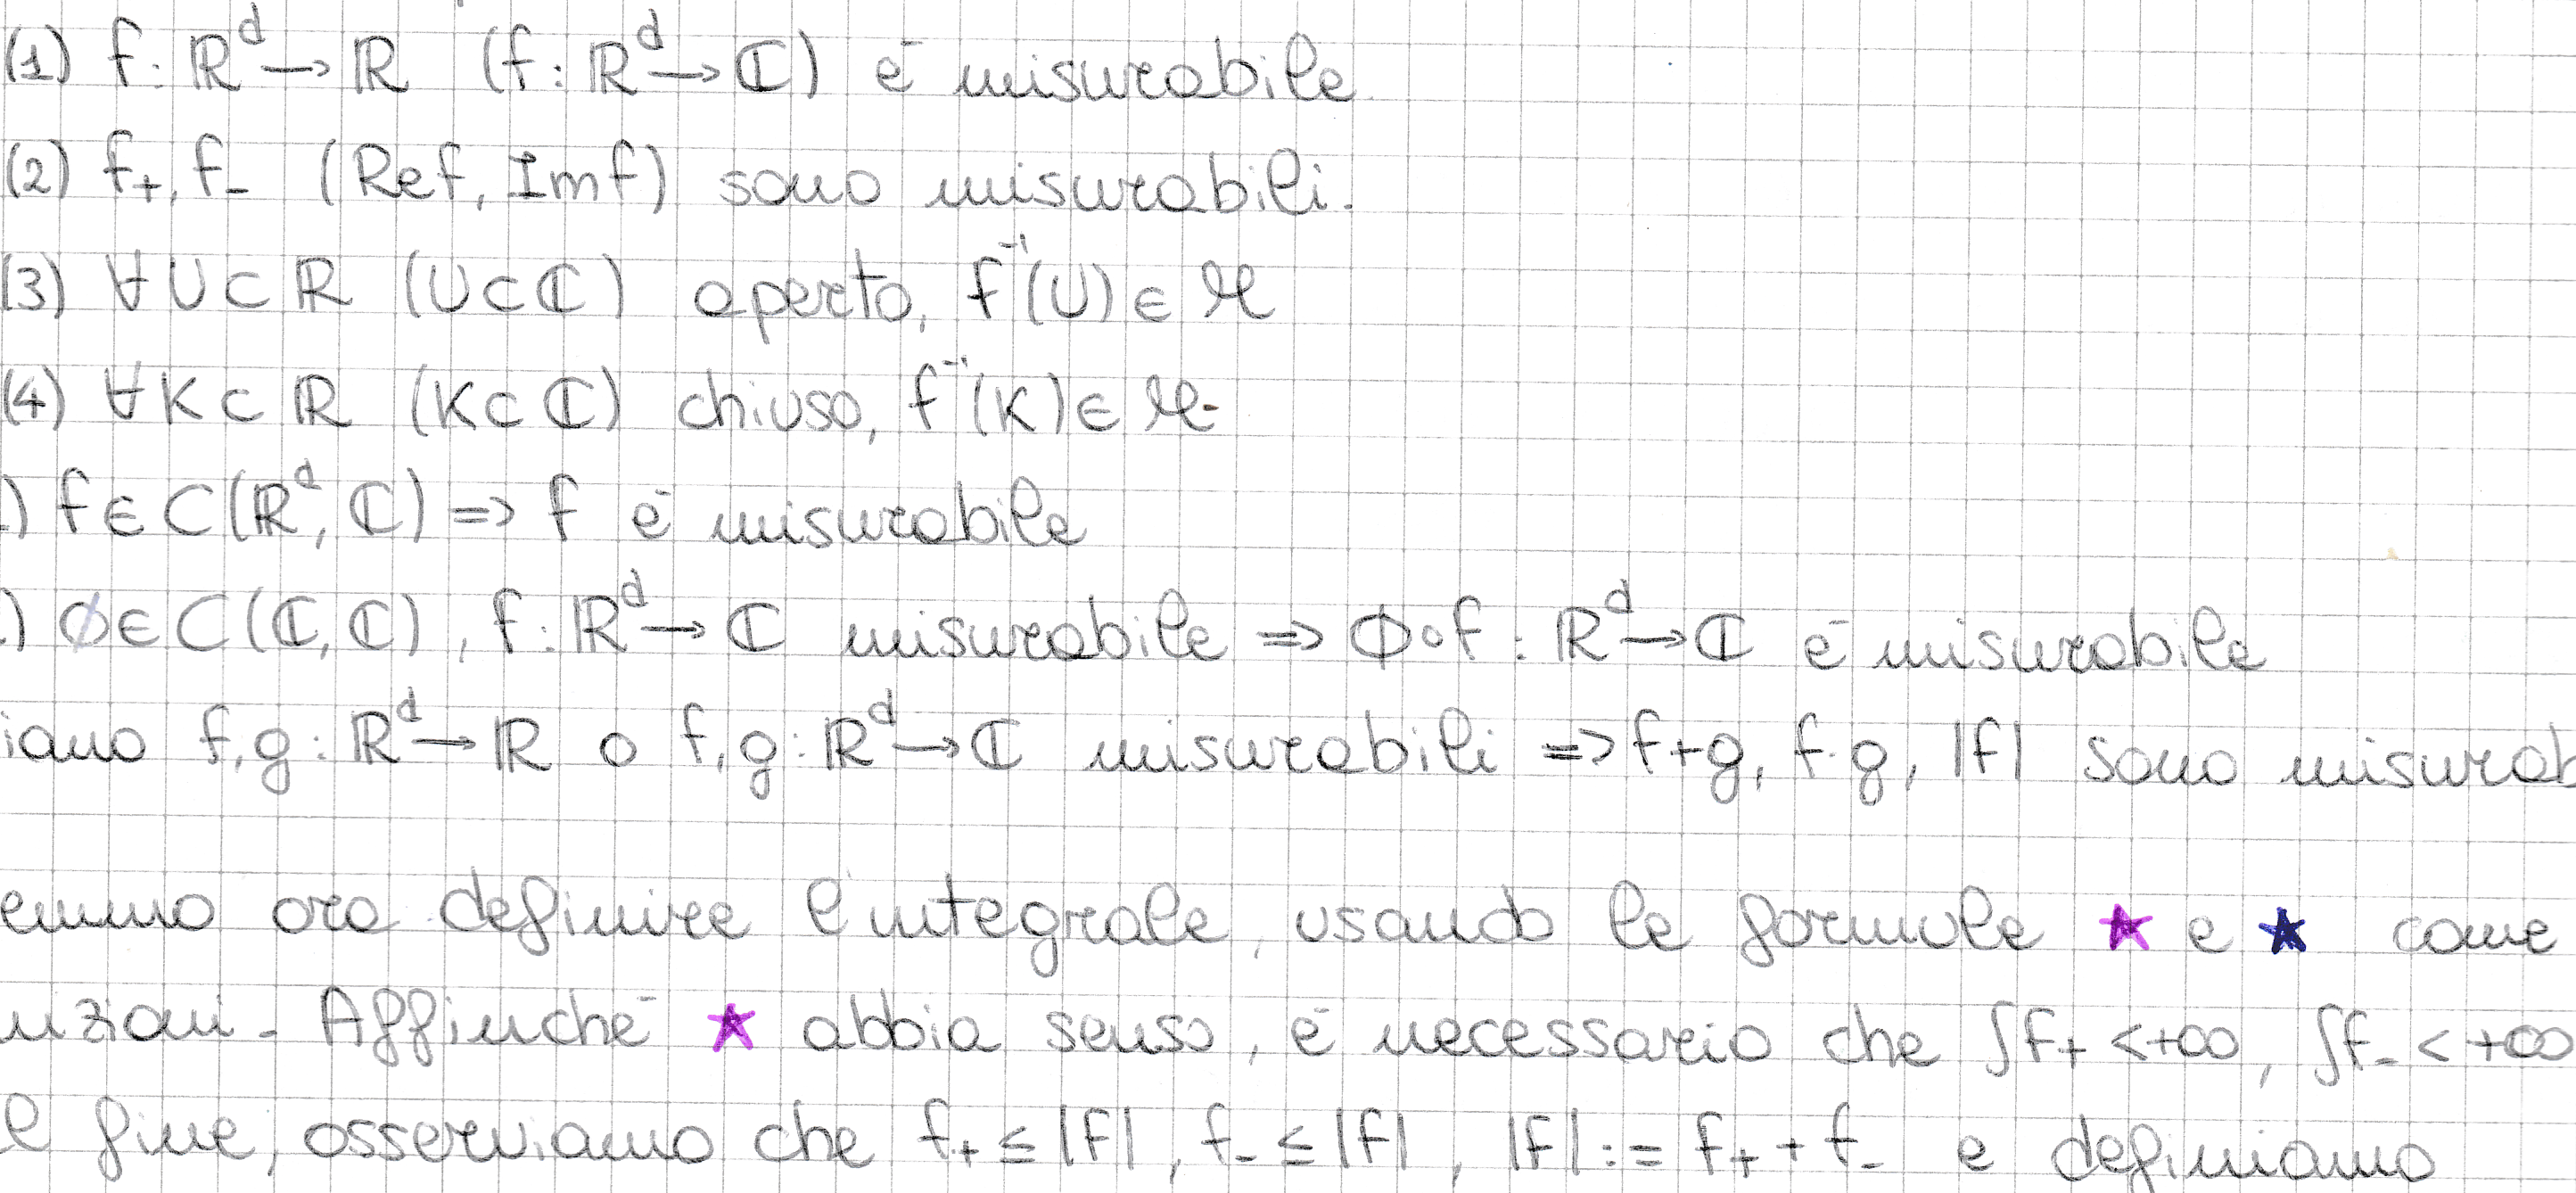 (1) f: ℝᵈ → ℝ (f: ℝᵈ → ℂ) é misurabile.
(2) f₊, f₋ (Ref, Imf) sono misurabili.
(3) ∀ U ⊂ ℝ (U ⊂ ℂ) aperto, f⁻¹(U) ∈ ℳ
(4) ∀ K ⊂ ℝ (K ⊂ ℂ) chiuso, f⁻¹(K) ∈ ℳ.
.) f ∈ C(ℝᵈ, ℂ) => f é misurabile
.) ϕ ∈ C(ℂ, ℂ), f: ℝᵈ → ℂ misurabile => ϕ∘f : ℝᵈ → ℂ é misurabile
iano f,g: ℝᵈ → ℝ o f,g: ℝᵈ → ℂ misurabili => f+g, f·g, |f| sono misurab
emmo ora definire l'integrale, usando le formule ★ e ★ come
nzioni. Affinché ★ abbia senso, é necessario che ∫f₊ < +∞, ∫f₋ < +∞
l fine, osserviamo che f₊ ≤ |f|, f₋ ≤ |f|, |f| := f₊ + f₋ e definiamo